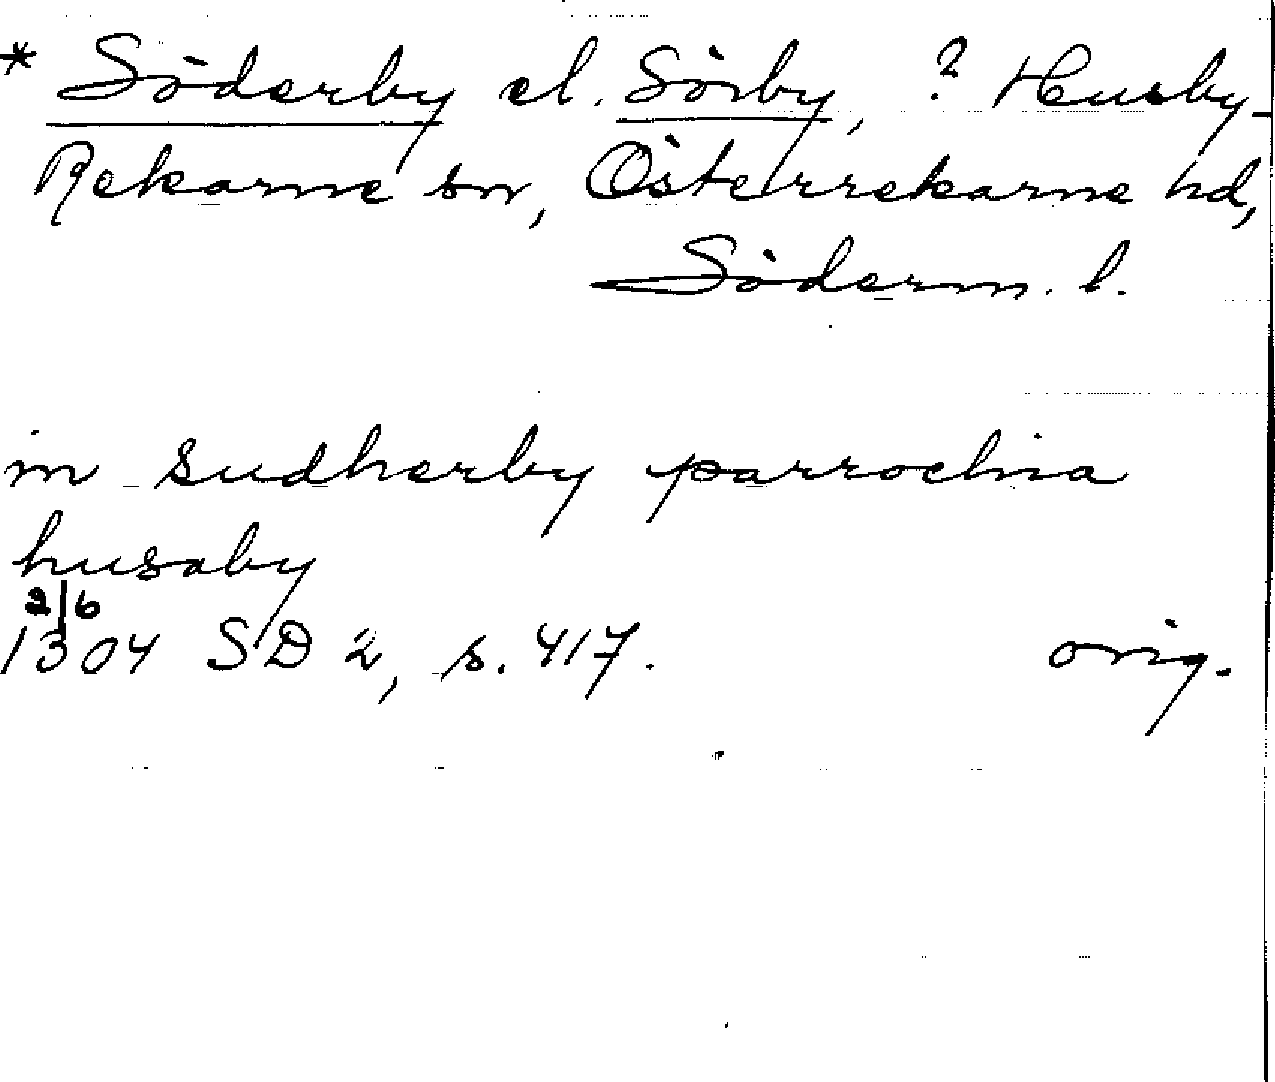 * Söderby el. Sörby, ? Husby-
Rekarne sn, Österrekarne hd,
Söderm. l.
in sudherby parrochia
husaby
2/6
1304 SD 2, s. 417. orig.